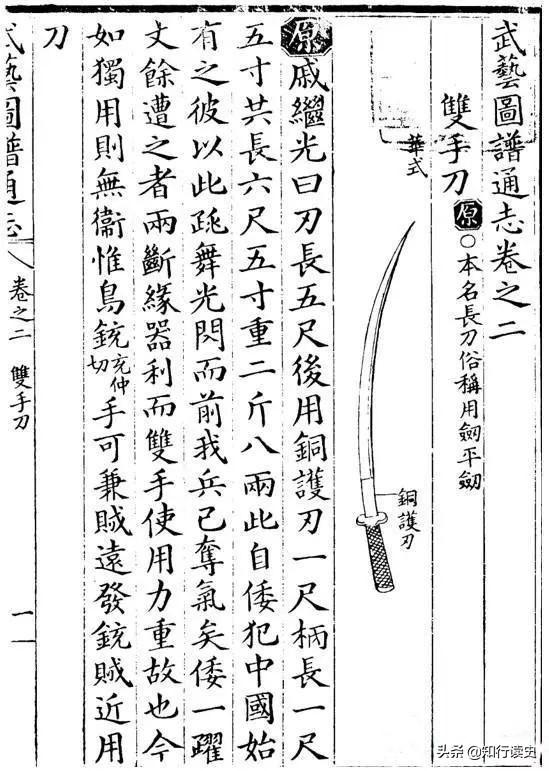 武藝圖譜通志卷之二
雙手刀 原 ○本名長刀俗稱用劒平劒
華式
銅護刃
原 戚繼光曰刃長五尺後用銅護刃一尺柄長一尺
五寸共長六尺五寸重二斤八兩此自倭犯中國始
有之彼以此跳舞光閃而前我兵已奪氣矣倭一躍
丈餘遭之者兩斷緣器利而雙手使用力重故也今
如獨用則無衞惟鳥銃充仲切手可兼賊遠發銃賊近用
刀
武藝圖譜通志 卷之二 雙手刀 一
头条 @知行读史